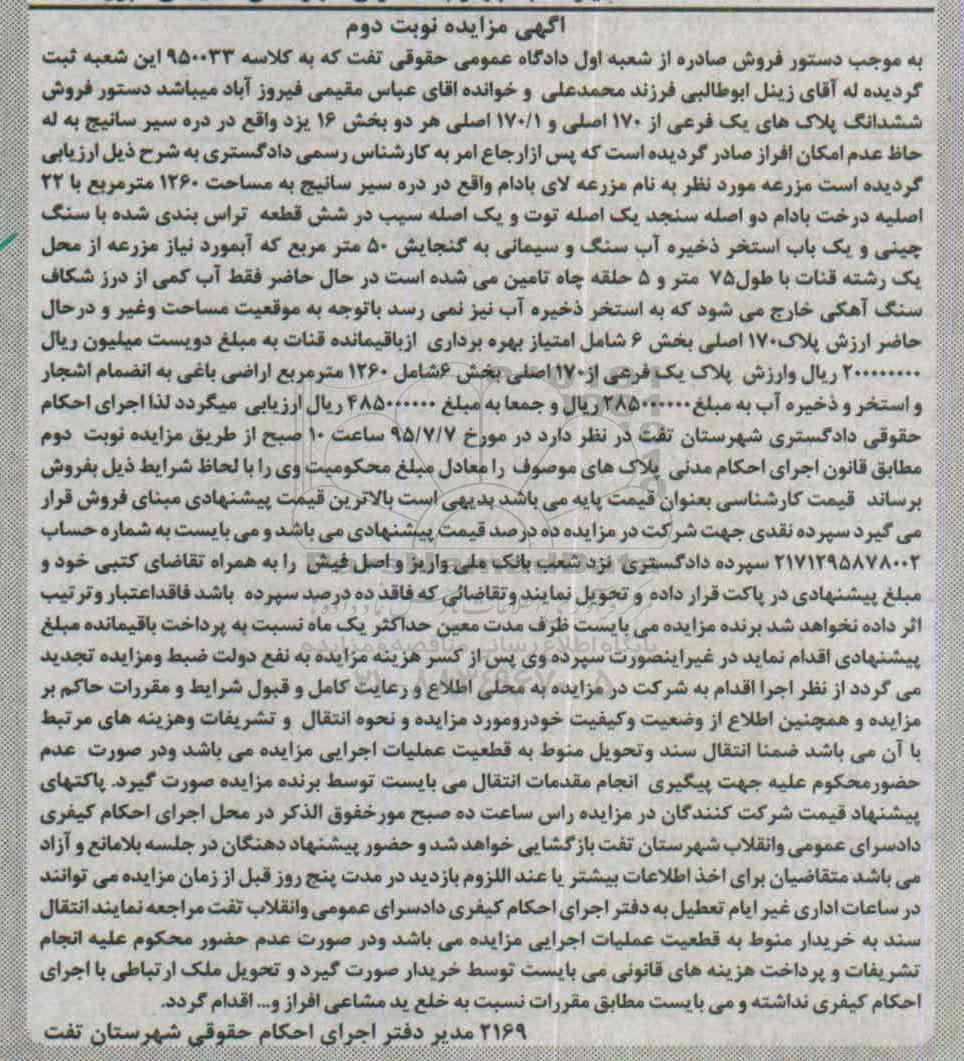 آگهی مزایده نوبت دوم
به موجب دستور فروش صادره از شعبه اول دادگاه عمومی حقوقی تفت که به کلاسه ۹۵۰۰۳۳ این شعبه ثبت
گردیده له آقای زینل ابوطالبی فرزند محمدعلی و خوانده اقای عباس مقیمی فیروز آباد میباشد دستور فروش
ششدانگ پلاک های یک فرعی از ۱۷۰ اصلی و ۱۷۰/۱ اصلی هر دو بخش ۱۶ یزد واقع در دره سیر سانیج به له
حاظ عدم امکان افراز صادر گردیده است که پس ازارجاع امر به کارشناس رسمی دادگستری به شرح ذیل ارزیابی
گردیده است مزرعه مورد نظر به نام مزرعه لای بادام واقع در دره سیر سانیج به مساحت ۱۲۶۰ مترمربع با ۲۲
اصلیه درخت بادام دو اصله سنجد یک اصله توت و یک اصله سیب در شش قطعه تراس بندی شده با سنگ
چینی و یک باب استخر ذخیره آب سنگ و سیمانی به گنجایش ۵۰ متر مربع که آبمورد نیاز مزرعه از محل
یک رشته قنات با طول۷۵ متر و ۵ حلقه چاه تامین می شده است در حال حاضر فقط آب کمی از درز شکاف
سنگ آهکی خارج می شود که به استخر ذخیره آب نیز نمی رسد باتوجه به موقعیت مساحت وغیر و درحال
حاضر ارزش پلاک۱۷۰ اصلی بخش ۶ شامل امتیاز بهره برداری ازباقیمانده قنات به مبلغ دویست میلیون ریال
۲۰۰۰۰۰۰۰۰ ریال وارزش پلاک یک فرعی از۱۷۰ اصلی بخش ۶شامل ۱۲۶۰ مترمربع اراضی باغی به انضمام اشجار
و استخر و ذخیره آب به مبلغ۲۸۵۰۰۰۰۰۰ ریال و جمعا به مبلغ ۴۸۵۰۰۰۰۰۰ ریال ارزیابی میگردد لذا اجرای احکام
حقوقی دادگستری شهرستان تفت در نظر دارد در مورخ ۹۵/۷/۷ ساعت ۱۰ صبح از طریق مزایده نوبت دوم
مطابق قانون اجرای احکام مدنی پلاک های موصوف را معادل مبلغ محکومیت وی را با لحاظ شرایط ذیل بفروش
برساند قیمت کارشناسی بعنوان قیمت پایه می باشد بدیهی است بالاترین قیمت پیشنهادی مبنای فروش قرار
می گیرد سپرده نقدی جهت شرکت در مزایده ده درصد قیمت پیشنهادی می باشد و می بایست به شماره حساب
۲۱۷۱۲۹۵۸۷۸۰۰۲ سپرده دادگستری نزد شعب بانک ملی واریز و اصل فیش را به همراه تقاضای کتبی خود و
مبلغ پیشنهادی در پاکت قرار داده و تحویل نمایند وتقاضائی که فاقد ده درصد سپرده باشد فاقداعتبار وترتیب
اثر داده نخواهد شد برنده مزایده می بایست ظرف مدت معین حداکثر یک ماه نسبت به پرداخت باقیمانده مبلغ
پیشنهادی اقدام نماید در غیراینصورت سپرده وی پس از کسر هزینه مزایده به نفع دولت ضبط ومزایده تجدید
می گردد از نظر اجرا اقدام به شرکت در مزایده به محلی اطلاع و رعایت کامل و قبول شرایط و مقررات حاکم بر
مزایده و همچنین اطلاع از وضعیت وکیفیت خودرومورد مزایده و نحوه انتقال و تشریفات وهزینه های مرتبط
با آن می باشد ضمنا انتقال سند وتحویل منوط به قطعیت عملیات اجرایی مزایده می باشد ودر صورت عدم
حضورمحکوم علیه جهت پیگیری انجام مقدمات انتقال می بایست توسط برنده مزایده صورت گیرد. پاکتهای
پیشنهاد قیمت شرکت کنندگان در مزایده راس ساعت ده صبح مورخفوق الذکر در محل اجرای احکام کیفری
دادسرای عمومی وانقلاب شهرستان تفت بازگشایی خواهد شد و حضور پیشنهاد دهنگان در جلسه بلامانع و آزاد
می باشد متقاضیان برای اخذ اطلاعات بیشتر یا عند اللزوم بازدید در مدت پنج روز قبل از زمان مزایده می توانند
در ساعات اداری غیر ایام تعطیل به دفتر اجرای احکام کیفری دادسرای عمومی وانقلاب تفت مراجعه نمایند انتقال
سند به خریدار منوط به قطعیت عملیات اجرایی مزایده می باشد ودر صورت عدم حضور محکوم علیه انجام
تشریفات و پرداخت هزینه های قانونی می بایست توسط خریدار صورت گیرد و تحویل ملک ارتباطی با اجرای
احکام کیفری نداشته و می بایست مطابق مقررات نسبت به خلع ید مشاعی افراز و... اقدام گردد.
۲۱۶۹ مدیر دفتر اجرای احکام حقوقی شهرستان تفت